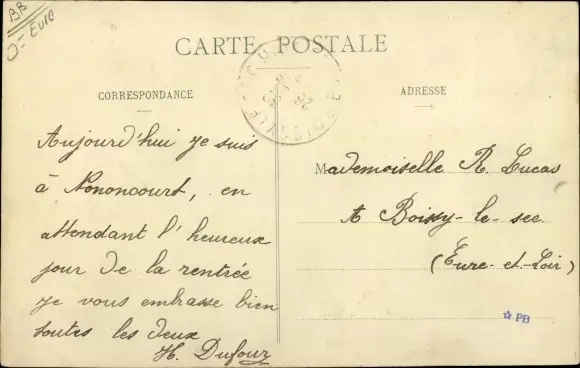 BB
O= Eure
CARTE POSTALE
CORRESPONDANCE
Aujourd'hui je suis
à Nononcourt, en
attendant l'heureux
jour de la rentrée
je vous embrasse bien
toutes les deux
H. Dufour
ADRESSE
Mademoiselle R. Lucas
A Boissy-le-sec
(Eure-et-Loir)
☆ PB